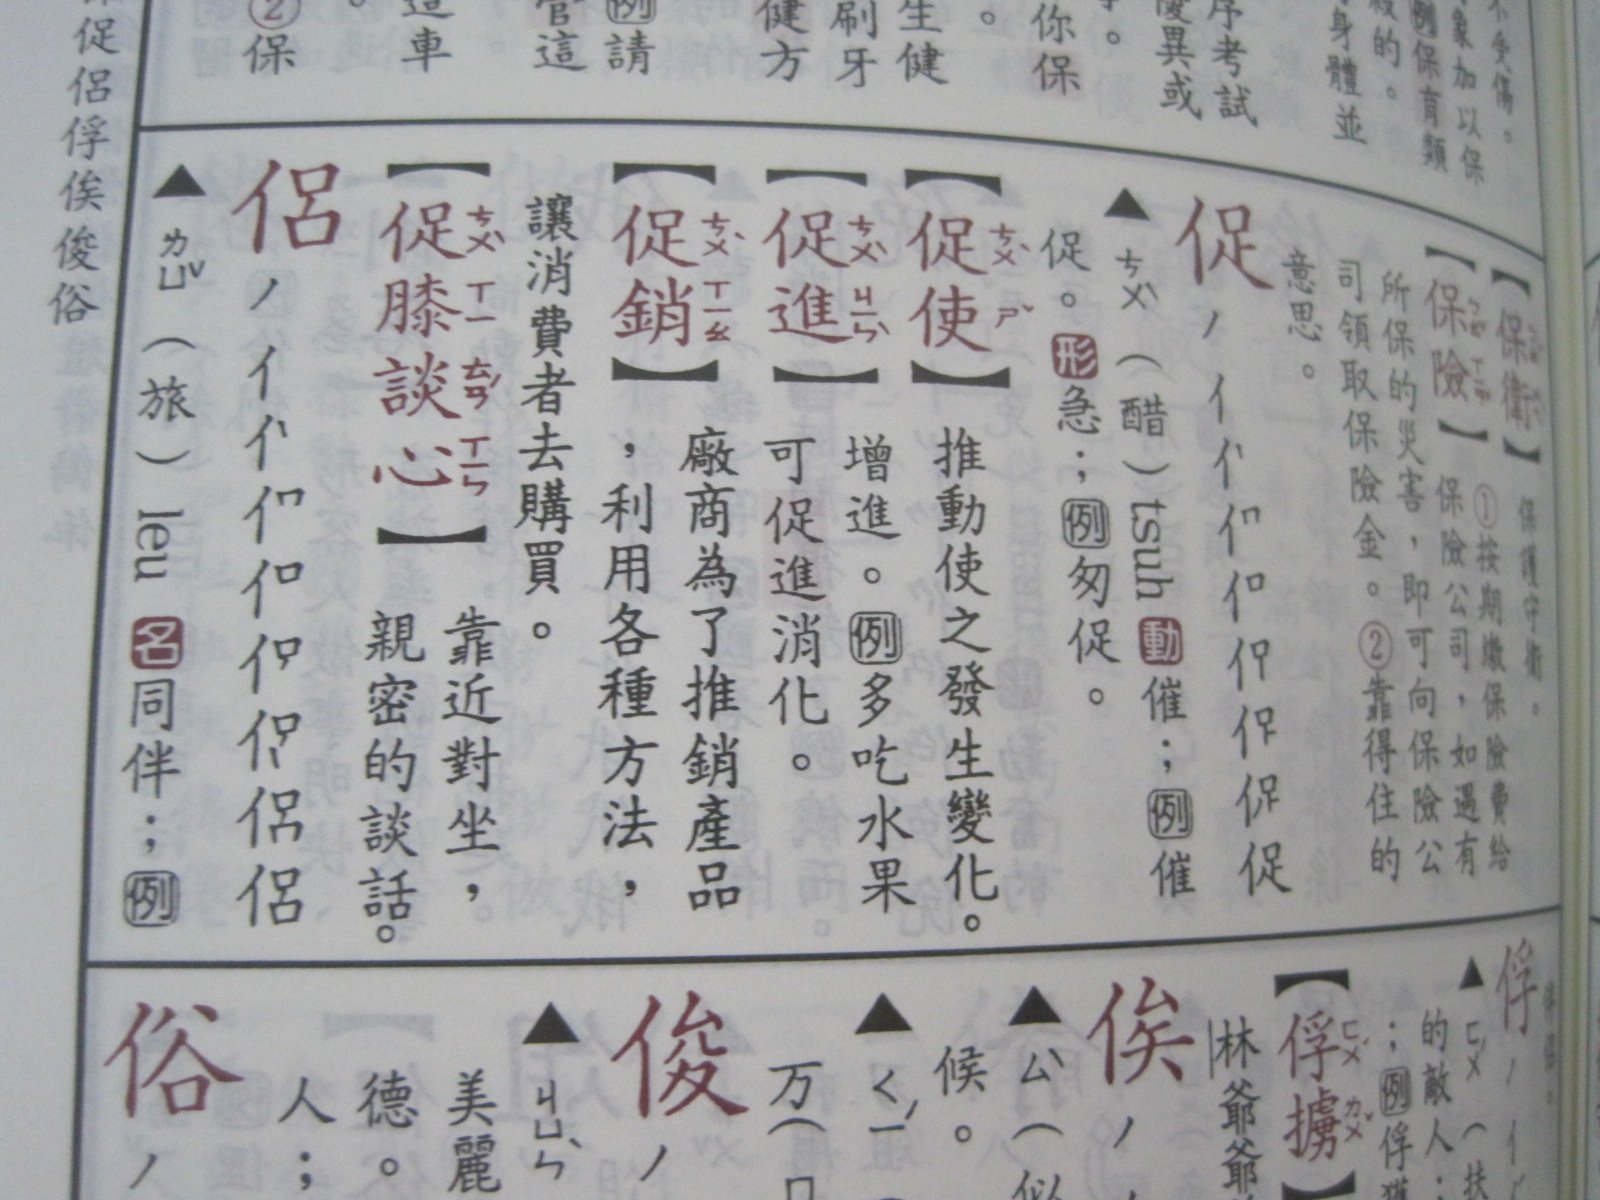 促侶俘俟俊俗
不受傷。
象加以保
例保育類
身體並
序考試
優異或
你保
。
生健
刷牙
健方
例請
管這
這車
②保
【保衛】保護守衛。
【保險】①按期繳保險費給
保險公司，如遇有
所保的災害，即可向保險公
司領取保險金。②靠得住的
意思。
促
▲ㄘㄨˋ（醋）tsuh 動催；例催
促。形急；例匆促。
【促使】ㄘㄨˋ ㄕˇ 推動使之發生變化。
【促進】ㄘㄨˋ ㄐㄧㄣˋ 增進。例多吃水果
可促進消化。
【促銷】ㄘㄨˋ ㄒㄧㄠ 廠商為了推銷產品
，利用各種方法，
讓消費者去購買。
【促膝談心】ㄘㄨˋ ㄒㄧ ㄊㄢˊ ㄒㄧㄣ 靠近對坐，
親密的談話。
侶
▲ㄌㄩˇ（旅）leu 名同伴；例
俘
▲ㄈㄨˊ（扶
的敵人；
；例俘獲
【俘擄】ㄈㄨˊ ㄌㄨˇ
林爺爺
俟
▲ㄙˋ（似
候。
▲ㄑㄧˊ
万（
俊
▲ㄐㄩㄣˋ
美麗
德。
人；
俗